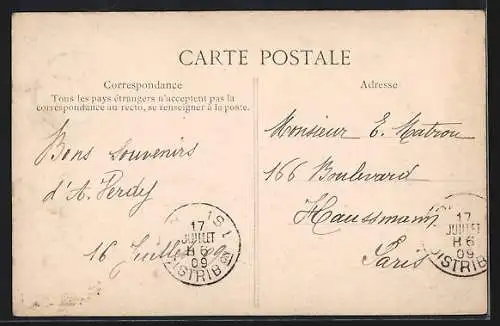 CARTE POSTALE
Correspondance
Tous les pays étrangers n'acceptent pas la
correspondance au recto, se renseigner à la poste.
Adresse
Bons souvenirs
d'A.
16 Juillet 09
Monsieur E. Matrou
166 Boulevard
Haussmann
Paris
17
JUILLET
H 6
09
DISTRIB
17
JUILLET
H 6
09
DISTRIB